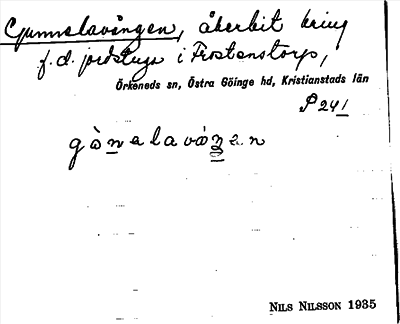 Gunnelavången, åkerbit kring
f. d. jordstuga i Frostentorp,
Örkeneds sn, Östra Göinge hd, Kristianstads län
P 241
NILS NILSSON 1935